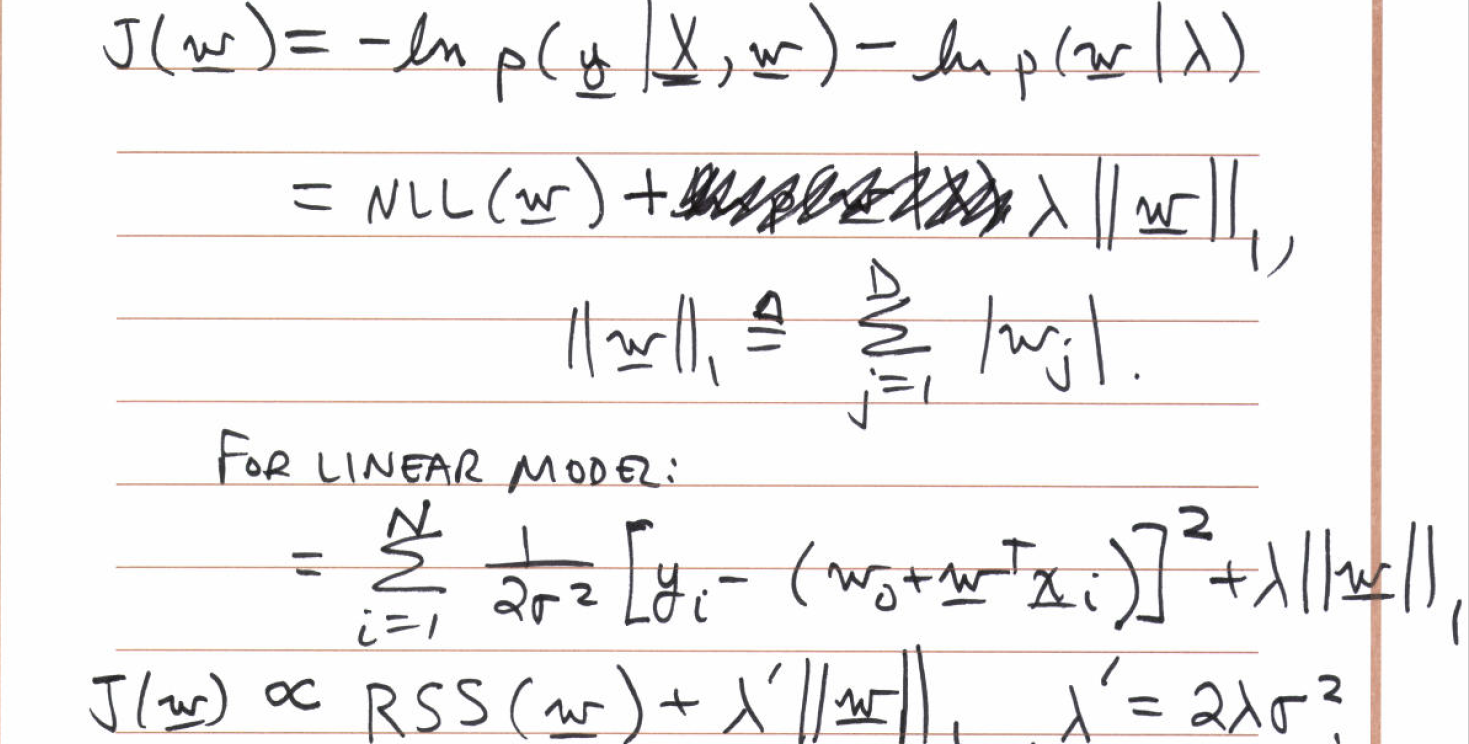 J(w̲) = -ln p(y̲ | X̲, w̲) - ln p(w̲ | λ)
= NLL(w̲) + λ ||w̲||₁,
||w̲||₁ ≜ Σ_{j=1}^{D} |w_j|.
FOR LINEAR MODEL:
= Σ_{i=1}^{N} 1/(2σ²) [y_i - (w₀ + w̲ᵀx̲_i)]² + λ||w̲||₁
J(w̲) ∝ RSS(w̲) + λ′||w̲||₁ λ′ = 2λσ².